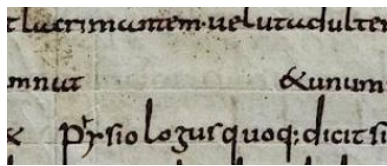 t lacrimantem· uel ut adulter
mnat & unum
& Physiologus quoq; dicit si